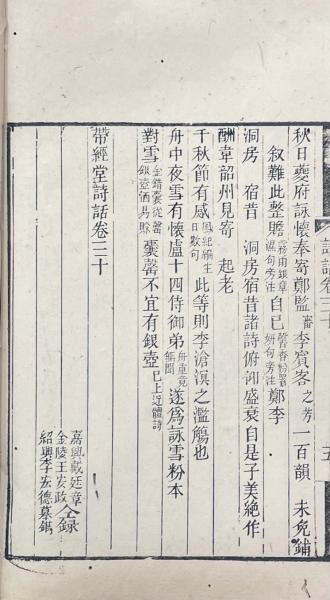 秋日夔府詠懷奉寄鄭監審李賓客之芳一百韻　未免鋪
叙難此整贍霧雨銀章澀句旁注自已馨香粉署妍句旁注鄭李
洞房　宿昔　洞房宿昔諸詩俯卹盛衰自是子美絶作
酬韋韶州見寄　起老
千秋節有感鳳紀編生日數句此等則李滄溟之濫觴也
舟中夜雪有懷盧十四侍御弟舟重竟無聞遂爲詠雪粉本
對雪金錯囊從罄銀壺酒易賒囊罄不宜有銀壺已上近體詩
帶經堂詩話卷三十
嘉興戴廷章
金陵王友政仝録
紹興李宏德摹鐫
詩話卷三十
五